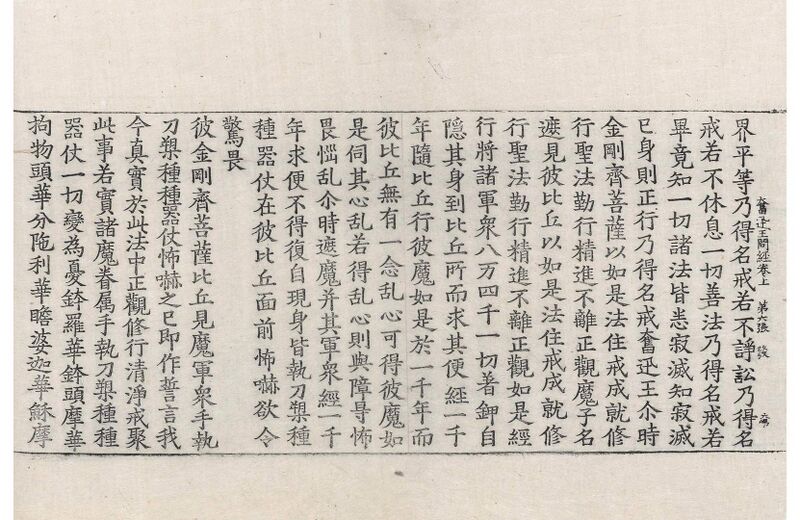 界平等乃得名戒若不諍訟乃得名
奮迅王問經卷上 第六張
戒若不休息一切善法乃得名戒若
畢竟知一切諸法皆悉寂滅知寂滅
已身則正行乃得名戒奮迅王尒時
金剛齊菩薩以如是法住戒成就修
行聖法勤行精進不離正觀魔子名
遮見彼比丘以如是法住戒成就修
行聖法勤行精進不離正觀如是經
行將諸軍衆八万四千一切著鉀自
隱其身到比丘所而求其便經一千
年隨比丘行彼魔如是於一千年而
彼比丘無有一念乱心可得彼魔如
是伺其心乱若得乱心則與障㝵怖
畏惱乱尒時遮魔并其軍衆經一千
年求便不得復自現身皆執刀槊種
種器仗在彼比丘面前怖嚇欲令
驚畏
彼金剛齊菩薩比丘見魔軍衆手執
刀槊種種器仗怖嚇之已即作誓言我
今真實於此法中正觀修行清淨戒聚
此事若實諸魔眷属手執刀槊種種
器仗一切變為憂鉢羅華鉢頭摩華
拘物頭華分陁利華瞻婆迦華蘇摩